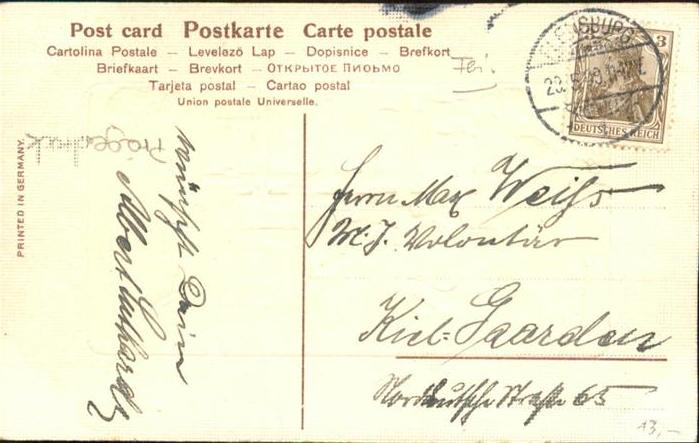 Post card Postkarte Carte postale
Cartolina Postale – Levelező Lap – Dopisnice – Brefkort
Briefkaart – Brevkort – ОТКРЫТОЕ ПИСЬМО
Tarjeta postal – Cartao postal
Union postale Universelle.
3
DEUTSCHES REICH
PRINTED IN GERMANY.
wünscht Dein
Albert
Herrn Max Weiß
M. J. Volontär
Kiel-Gaarden
Norddeutsche Straße 65
13,-